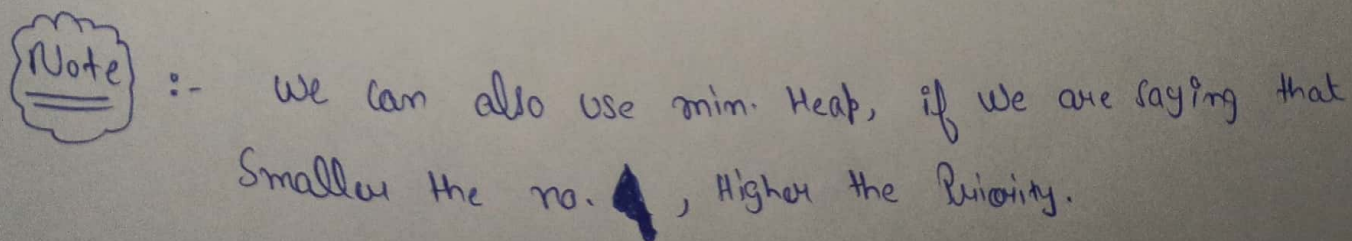 Note :- We can also use min. Heap, if we are saying that
Smaller the no. , Higher the Priority.